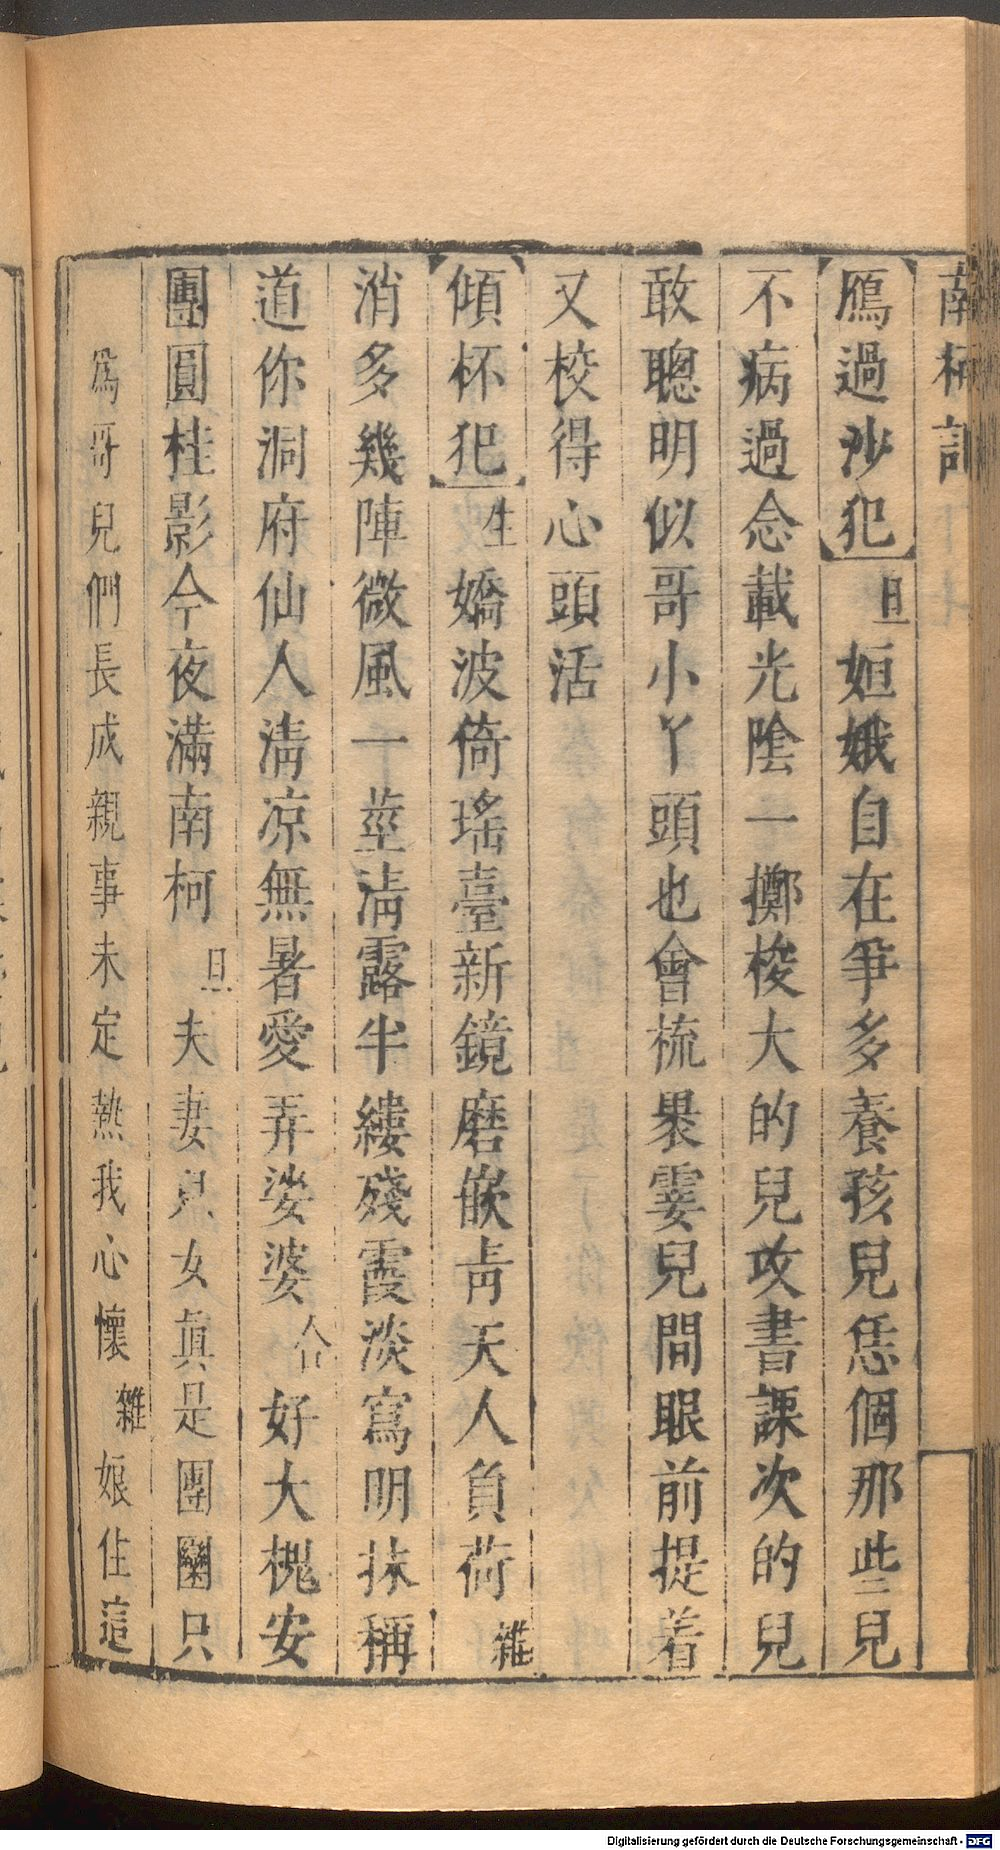 南柯記
鴈過沙犯 旦 姮娥自在爭多養孩兒恁個那些兒
不病過念載光陰一擲梭大的兒攻書課次的兒
敢聰明似哥小丫頭也會梳褁霎兒間眼前提着
又校得心頭活
傾杯犯 生 嬌波倚瑤臺新鏡磨嵌青天人負荷 雜
消多幾陣微風一莖淸露半縷殘霞淡寫明抹稱
道你洞府仙人淸凉無暑愛弄娑婆 合 好大槐安
團圓桂影今夜滿南柯 旦 夫妻兒女眞是團圞只
爲哥兒們長成親事未定熱我心懷 雜 娘住這
Digitalisierung gefördert durch die Deutsche Forschungsgemeinschaft - DFG